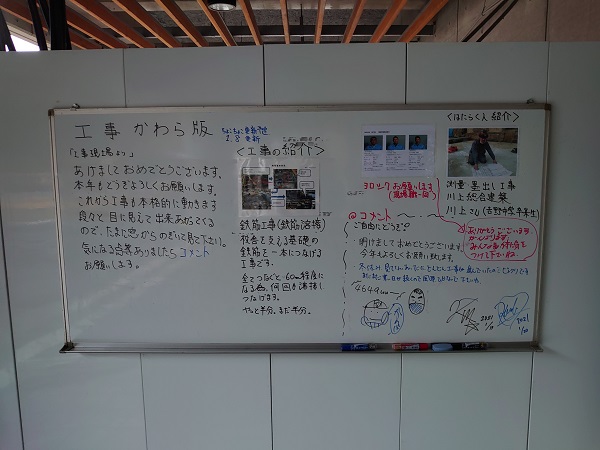 工事かわら版
ちょこちょこ更新
2.8 更新
「工事現場より」
あけましておめでとうございます。
本年もどうぞよろしくお願いします。
これから工事も本格的に動きます
段々と目に見えて出来あがってくる
ので、たまに窓からのぞいて見て下さい。
気になる点等ありましたらコメント
お願いします。
<工事の紹介>
鉄筋工事(鉄筋溶接)
校舎を支える基礎の
鉄筋を一本につなげる
工事です。
全てつなぐと、60m程度に
なる為、何回も溶接し
つなげます。
やっと半分、まだ半分。
ヨロシクお願いします
(現場職一同)
◎コメント
ご自由にどうぞ
明けましておめでとうございます
今年もよろしくお願い致します。
4649
<はたらく人紹介>
測量 墨出し工事
川上総合建築
川上さん(吉野中学卒業生)
ありがとうございます
がんばります
気をつけて下さいね。
2021
1/19
2021
1/20